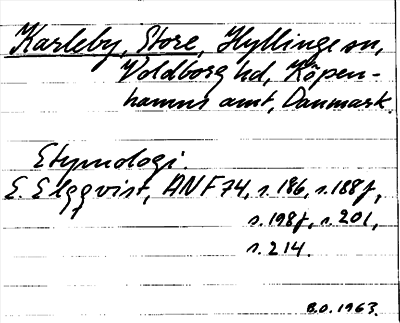 Karleby, Store, Hyllinge sn,
Voldborg hd, Köpen-
hamns amt, Danmark.
Etymologi.
E. Elqqvist, ANF 74, s. 186, s. 188f,
s. 198f, s. 201,
s. 214.
B.O. 1963.